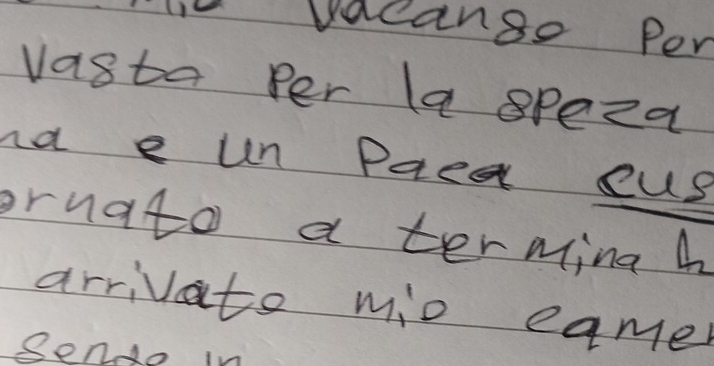 vacanso Per
Vasto Per la speza
na e un Paca cus
ornato a termina h
arrivato mio camer
sendo in